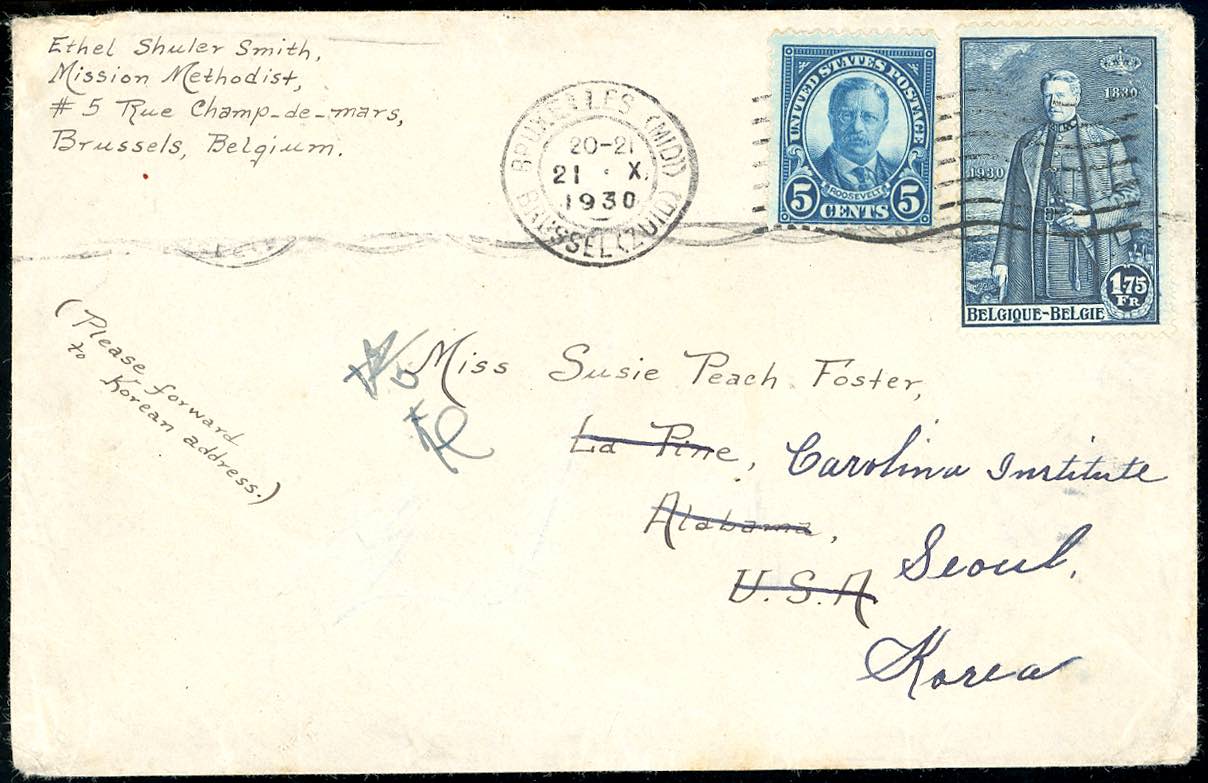 Ethel Shuler Smith,
Mission Methodist,
# 5 Rue Champ-de-mars,
Brussels, Belgium.
BRUXELLES (MIDI)
20-21
21 · X.
1930
BRUSSEL (ZUID)
UNITED STATES POSTAGE
ROOSEVELT
5 CENTS 5
1830
1930
1.75
FR
BELGIQUE-BELGIE
(Please forward
to Korean address.)
Miss Susie Peach Foster,
La Pine, Carolina Institute
Alabama, Seoul,
U.S.A
Korea